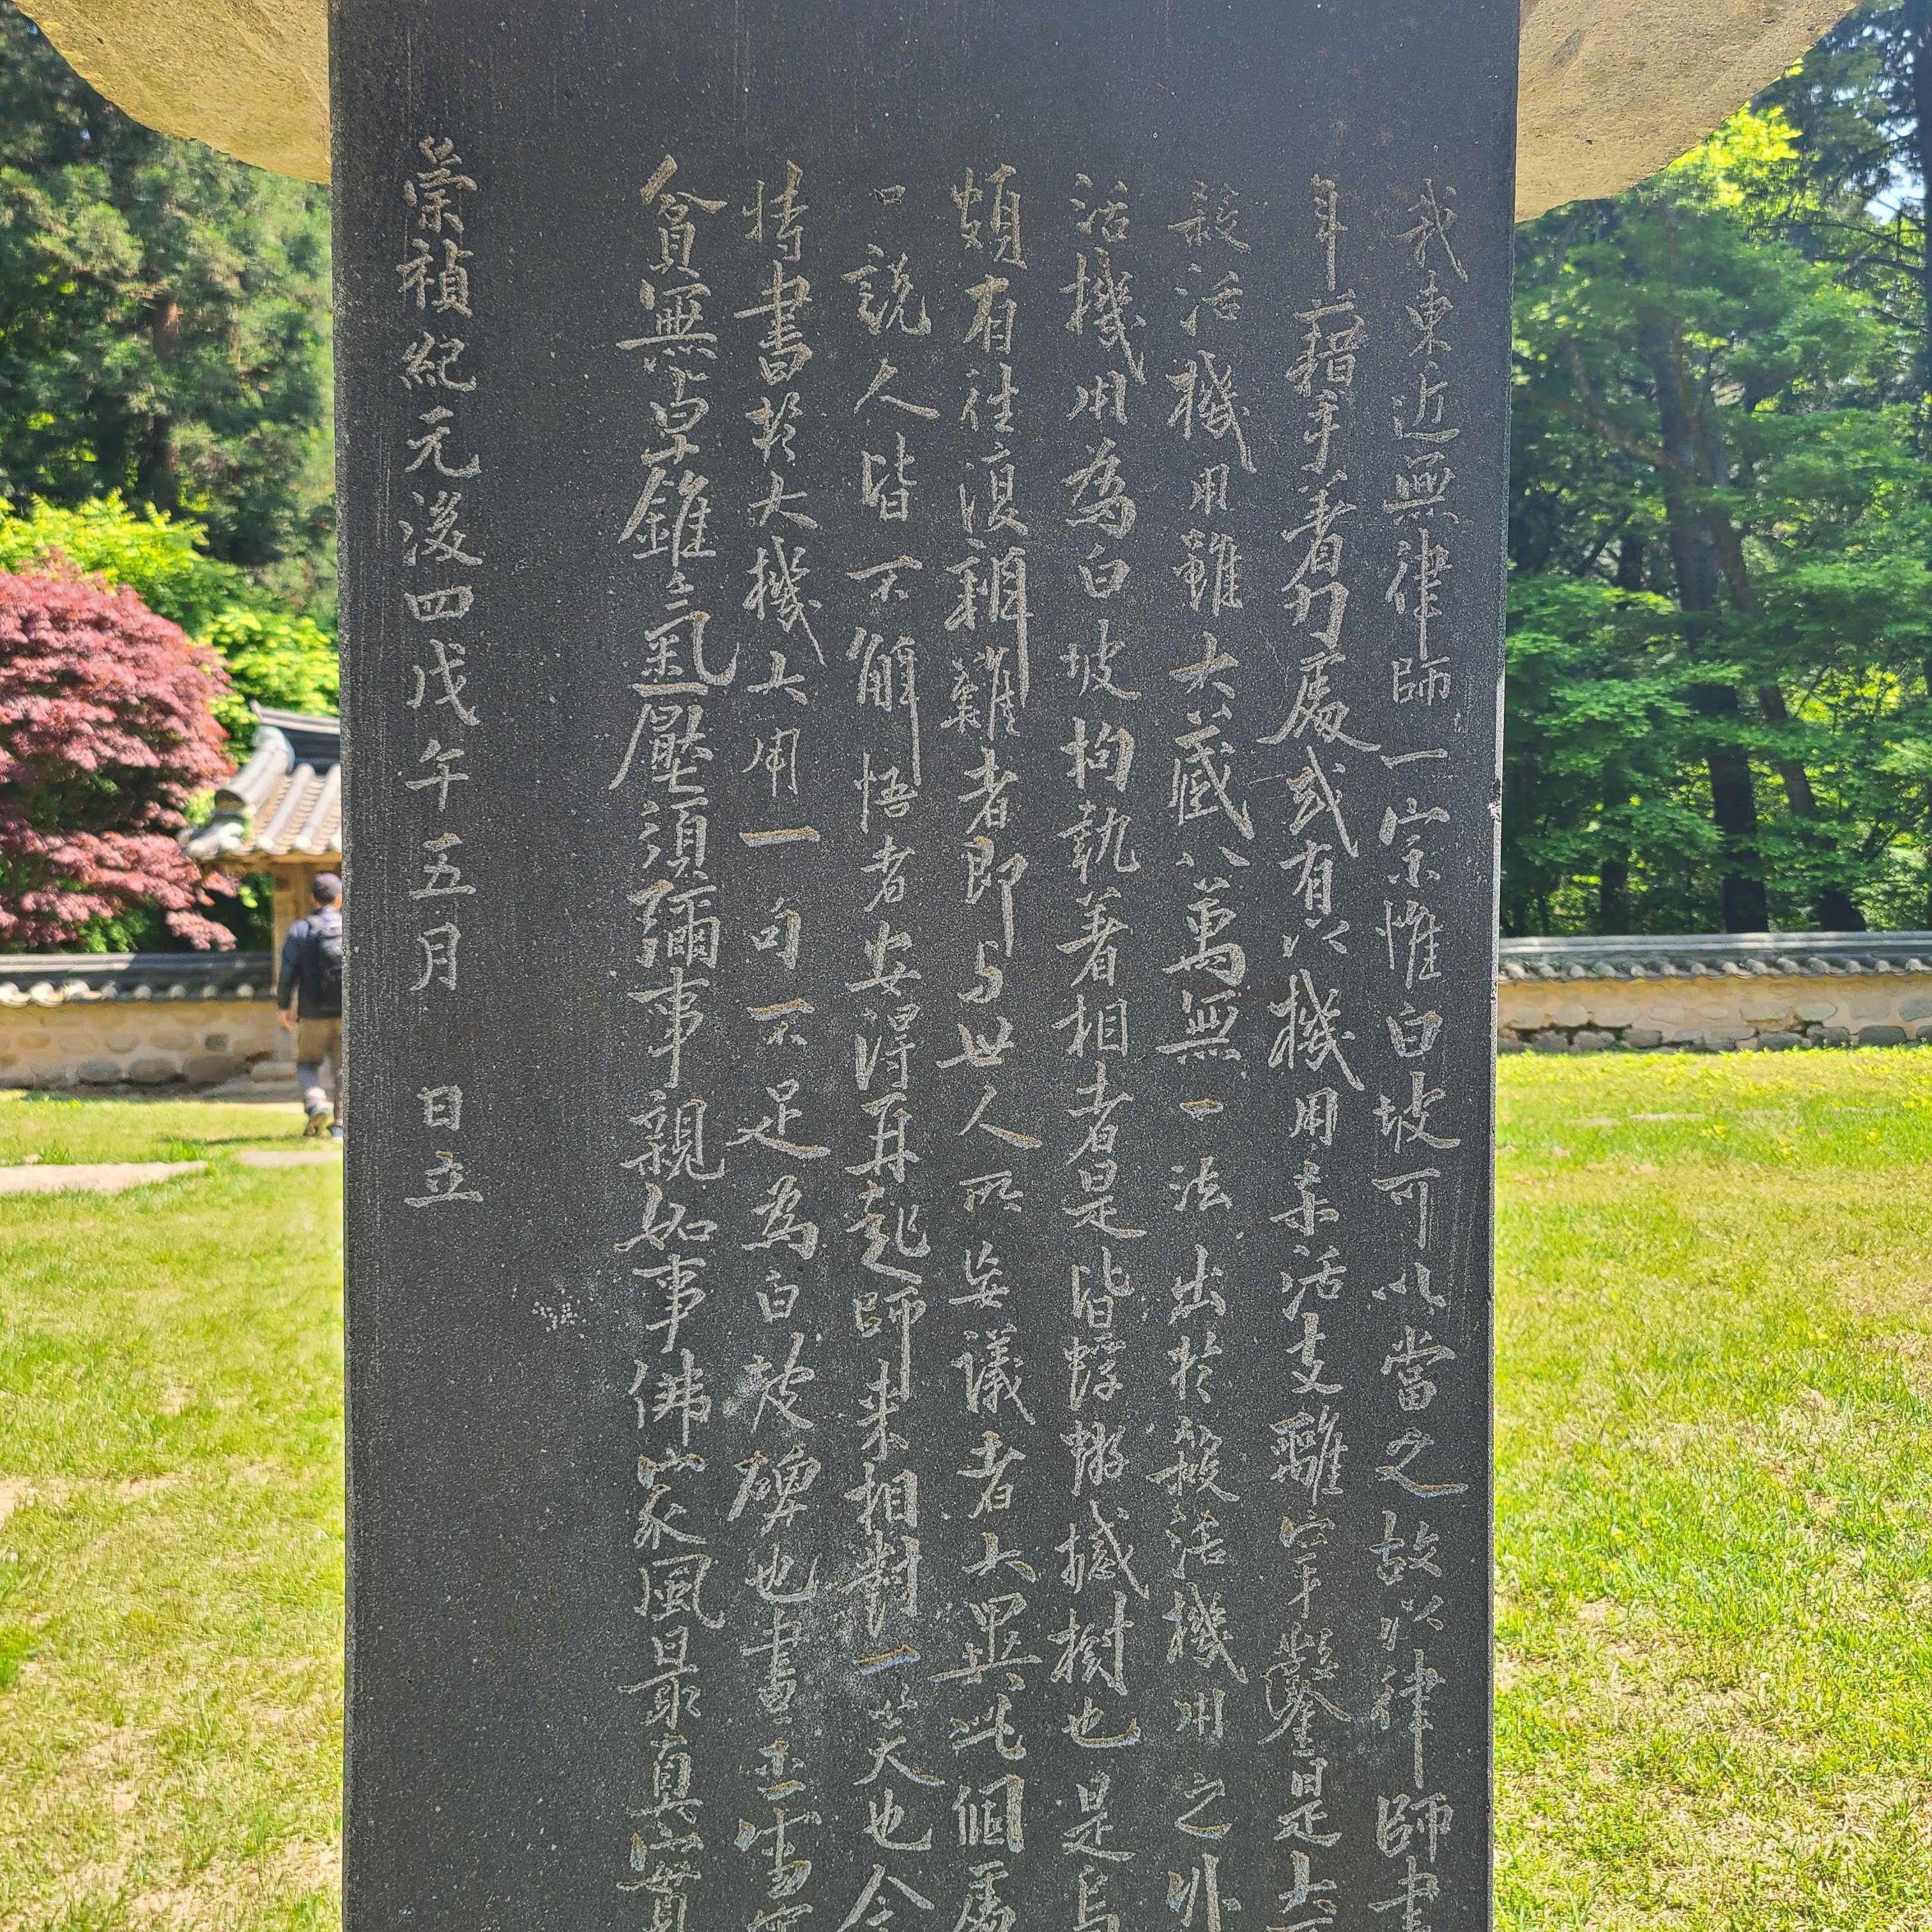 我東近無律師一宗惟白坡可以當之故以律師書
年藉手著力處或有以機用杀活支離穿鑿是大
殺活機用雖大藏八萬無一法出於殺活機用之外
活機用為白坡拘執著相者是皆蜉蝣撼樹也是烏
頗有往復辨難者即與世人所妄議者大異此個處
口說人皆不解悟者安得再起師來相對一笑也今
特書於大機大用一句不足為白坡碑也書示雪竇
貧無卓錐氣壓須彌事親如事佛家風最真實
崇禎紀元後四戊午五月 日立